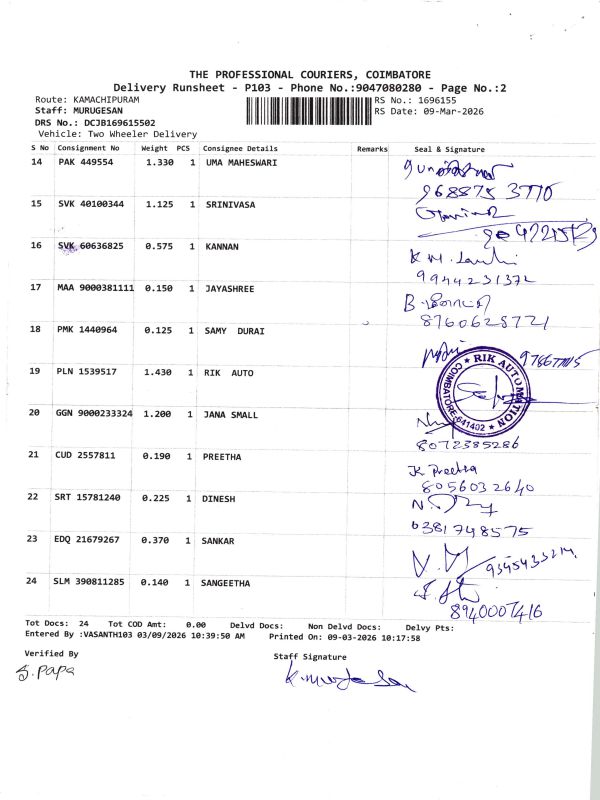 THE PROFESSIONAL COURIERS, COIMBATORE
Delivery Runsheet - P103 - Phone No.:9047080280 - Page No.:2
Route: KAMACHIPURAM RS No.: 1696155
Staff: MURUGESAN RS Date: 09-Mar-2026
DRS No.: DCJB169615502
Vehicle: Two Wheeler Delivery
S No Consignment No Weight PCS Consignee Details Remarks Seal & Signature
14 PAK 449554 1.330 1 UMA MAHESWARI
968875 3770
15 SVK 40100344 1.125 1 SRINIVASA
16 SVK 60636825 0.575 1 KANNAN
K.M.
9944231372
17 MAA 9000381111 0.150 1 JAYASHREE
B.
8760628721
18 PMK 1440964 0.125 1 SAMY DURAI
19 PLN 1539517 1.430 1 RIK AUTO
RIK AUTOMATION
COIMBATORE-641402
20 GGN 9000233324 1.200 1 JANA SMALL
8072385286
21 CUD 2557811 0.190 1 PREETHA
K Preetha
8056032640
22 SRT 15781240 0.225 1 DINESH
6381748575
23 EDQ 21679267 0.370 1 SANKAR
24 SLM 390811285 0.140 1 SANGEETHA
8940007416
Tot Docs: 24 Tot COD Amt: 0.00 Delvd Docs: Non Delvd Docs: Delvy Pts:
Entered By :VASANTH103 03/09/2026 10:39:50 AM Printed On: 09-03-2026 10:17:58
Verified By Staff Signature
S. Papa